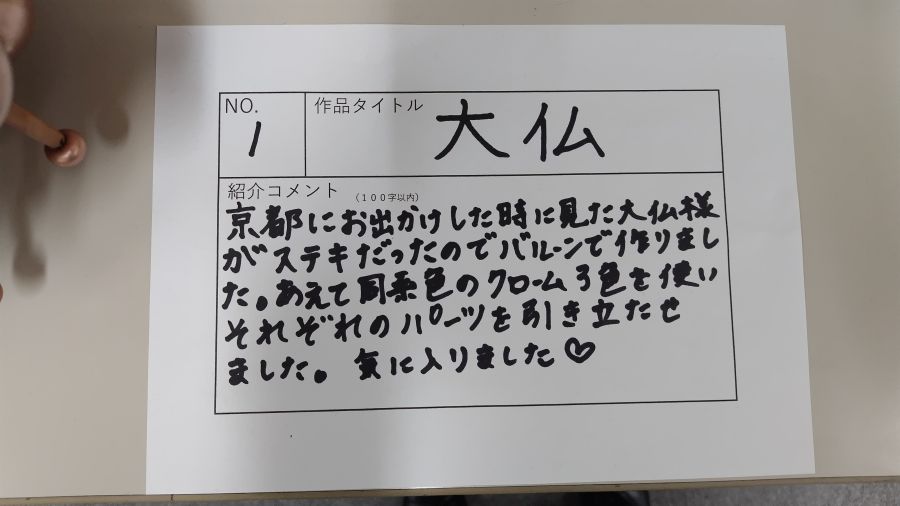 NO.
1
作品タイトル
大仏
紹介コメント (100字以内)
京都にお出かけした時に見た大仏様
がステキだったのでバルーンで作りまし
た。あえて同柔色のクローム3色を使い
それぞれのパーツを引き立たせ
ました。気に入りました♡